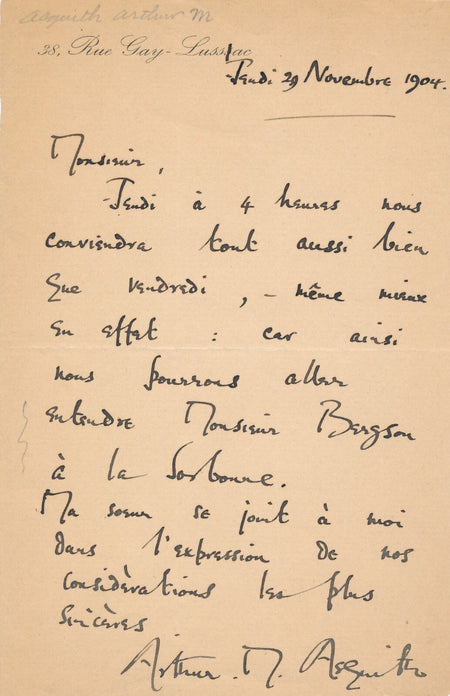 Asquith Arthur M
38, Rue Gay-Lussac
Jeudi 29 Novembre 1904.
Monsieur,
Jeudi à 4 heures nous
conviendra tout aussi bien
que vendredi, – même mieux
en effet : car ainsi
nous pourrons aller
entendre Monsieur Bergson
à la Sorbonne.
Ma soeur se joint à moi
dans l'expression de nos
considèrations les plus
sincères
Arthur. M. Asquith